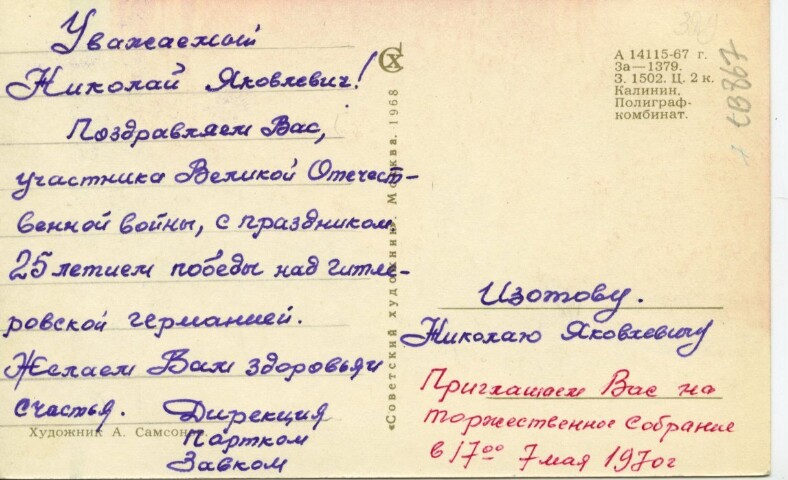 Уважаемый
Николай Яковлевич!
Поздравляем Вас,
участника Великой Отечест-
венной войны, с праздником
25 летием победы над гитле-
ровской германией.
Желаем Вам здоровья и
счастья. Дирекция
Партком
Завком
Художник А. Самсонов
«Советский художник». Москва. 1968
СХ
А 14115-67 г.
За—1379.
З. 1502. Ц. 2 к.
Калинин.
Полиграф-
комбинат.
Изотову.
Николаю Яковлевичу
Приглашаем Вас на
торжественное собрание
в 17⁰⁰ 7 мая 1970г